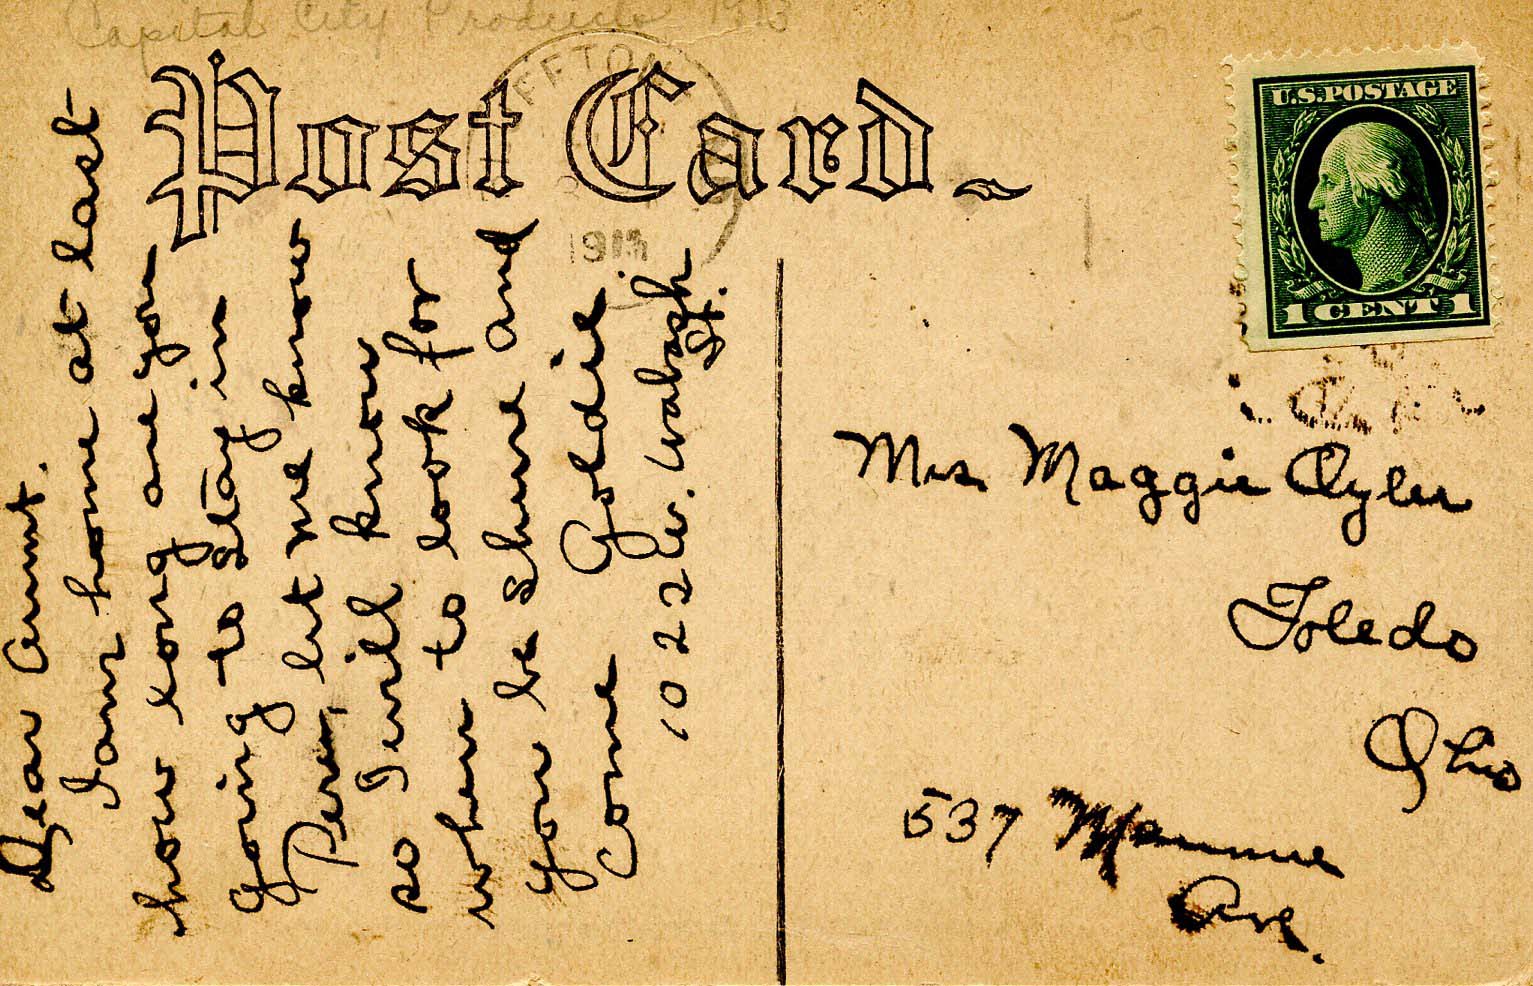 Capital City Products 1913
50
Post Card
FFTON
191
U.S. POSTAGE
1 CENT 1
Dear Aunt.
I am home at last
how long are you
going to stay in
Peru, let me know
so I will know
when to look for
you be shure and
come Goldie
1022 W. Wabash
St.
Mrs. Maggie Oyler
Toledo
Ohio
537 Maumee
Ave.